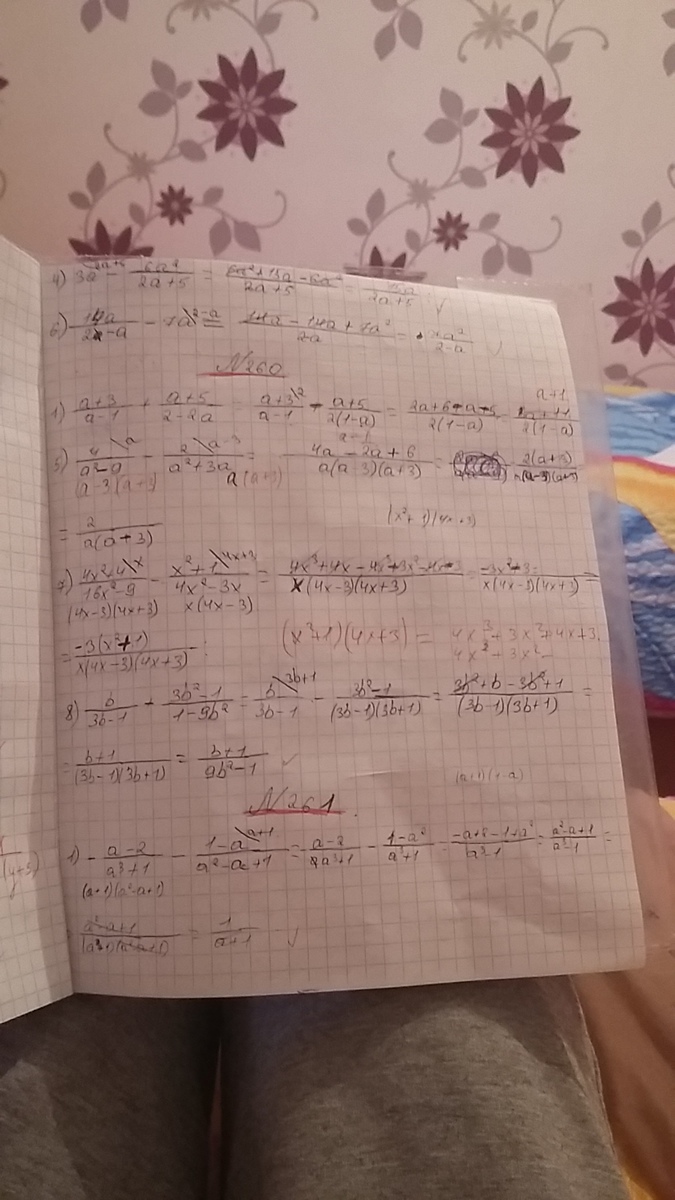 4) 3a^{2a+5} - 6a²/(2a+5) = (6a²+15a-6a²)/(2a+5) = 15a/(2a+5)
6) 14a/(2-a) - 7a^{2-a} = (14a-14a+7a²)/(2-a) = 7a²/(2-a)
N260
a+1
1) (a+3)/(a-1) + (a+5)/(2-2a) = (a+3)\2/(a-1) - (a+5)/(2(1-a)) = (2a+6-a-5)/(2(1-a)) = /(2(1-a))
a-1
5) 4\a/(a²-9) - 2\a-3/(a²+3a) = (4a-2a+6)/(a(a-3)(a+3)) = 2(a+3)/(a(a-3)(a+3))
(a-3)(a+3) a(a+3)
= 2/(a(a-3))
(x²+1)(4x+3)
7) (4x²+4)\x/(16x²-9) - (x²+1)\4x+3/(4x²-3x) = (4x³+4x-4x³-3x²-4x-3)/(x(4x-3)(4x+3)) = (-3x²-3)/(x(4x-3)(4x+3)) =
(4x-3)(4x+3) x(4x-3)
= -3(x²+1)/(x(4x-3)(4x+3))
(x²+1)(4x+3) = 4x³+3x²+4x+3
4x²+3x²-
8) b/(3b-1) + (3b²-1)/(1-9b²) = b\3b+1/(3b-1) - (3b²-1)/((3b-1)(3b+1)) = (3b²+b-3b²+1)/((3b-1)(3b+1)) =
= (b+1)/((3b-1)(3b+1)) = (b+1)/(9b²-1)
(a+1)(1-a)
N261.
1) -(a-2)/(a³+1) - (1-a)\a+1/(a²-a+1) = (a-2)/(a³+1) - (1-a²)/(a³+1) = (-a+2-1+a²)/(a³-1) = (a²-a+1)/(a³-1) =
(a+1)(a²-a+1)
(a²-a+1)/((a+1)(a²-a+1)) = 1/(a+1)